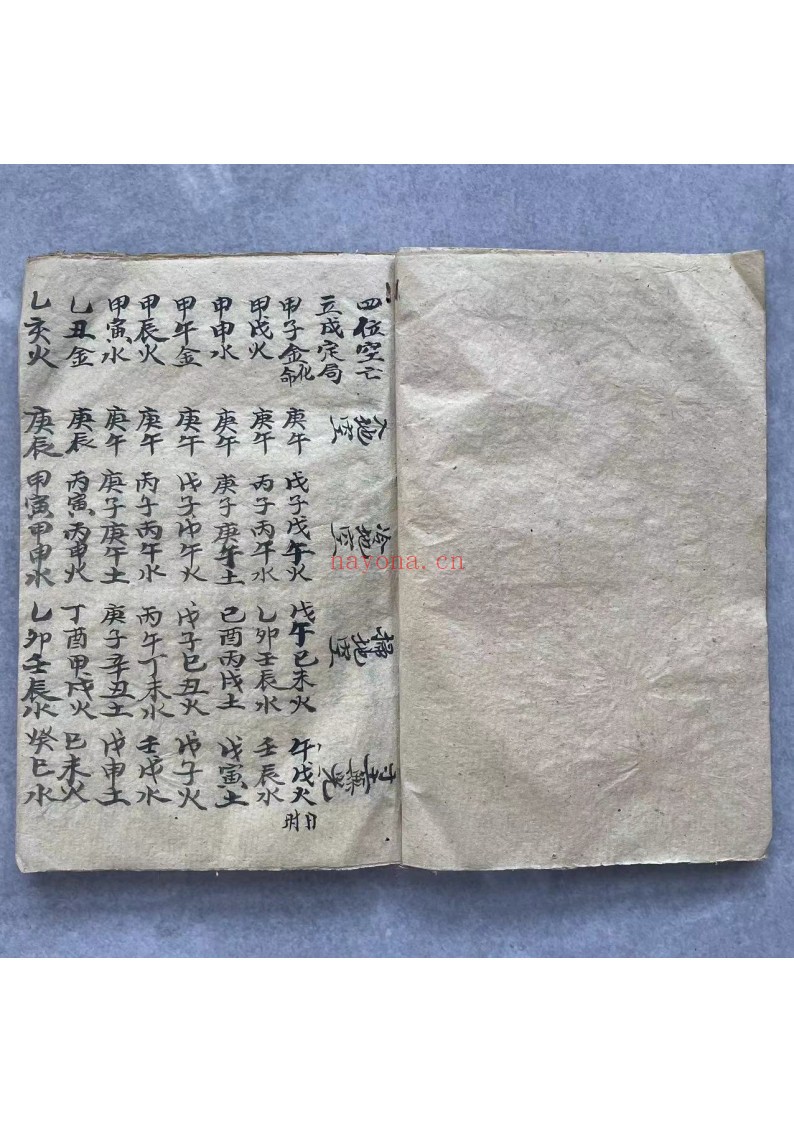 四位空亡
立成定局
地空
冷地空
掃地空
甲子金化命 庚午 戊子戊午火 戊午己未火 戊火日时
甲戌火 庚午 丙子丙午水 乙卯壬辰水 壬辰水
甲申水 庚午 庚子庚午土 己酉丙戌土 戊寅土
甲午金 庚午 戊子戊午火 戊子己丑火 戊子火
甲辰火 庚午 丙子丙午水 丙午丁未水 壬戌水
甲寅水 庚午 庚子庚午土 庚子辛丑土 戊申土
乙丑金 庚辰 丙寅丙申火 丁酉甲戌火 己未火
乙亥火 庚辰 甲寅甲申水 乙卯壬辰水 癸巳水
nayona.cn